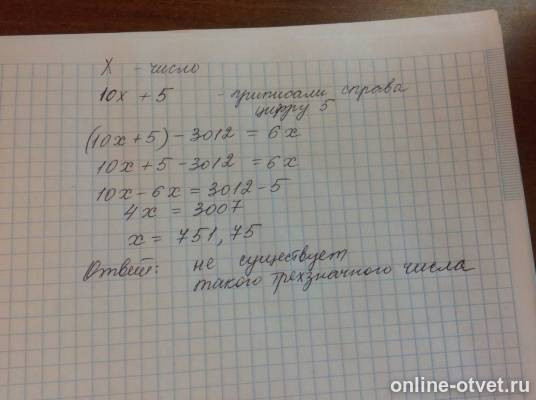 x - число
10x + 5 - приписали справа
цифру 5
(10x + 5) - 3012 = 6x
10x + 5 - 3012 = 6x
10x - 6x = 3012 - 5
4x = 3007
x = 751,75
Ответ: не существует
такого трехзначного числа
online-otvet.ru